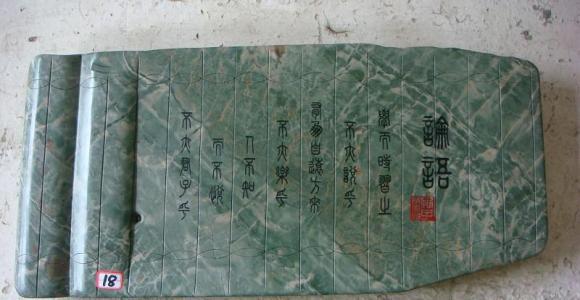 論語
學而時習之
不亦說乎
有朋自遠方來
不亦樂乎
人不知
而不慍
不亦君子乎
18